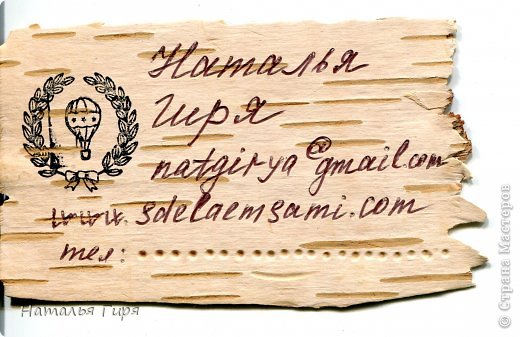 Наталья
Гиря
natgirya@gmail.com
www.sdelaemsami.com
тел:..............................
Наталья Гиря
© Страна Мастеров